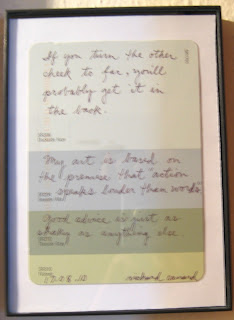 If you turn the other
cheek to far, you'll
probably get it in
the back.
My art is based on
the premise that "action
speaks louder than words"
Good advice is just as
shaky as anything else.